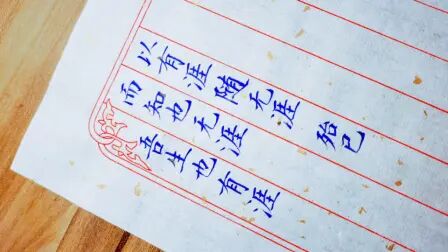 吾生也有涯
而知也无涯
以有涯随无涯
殆已